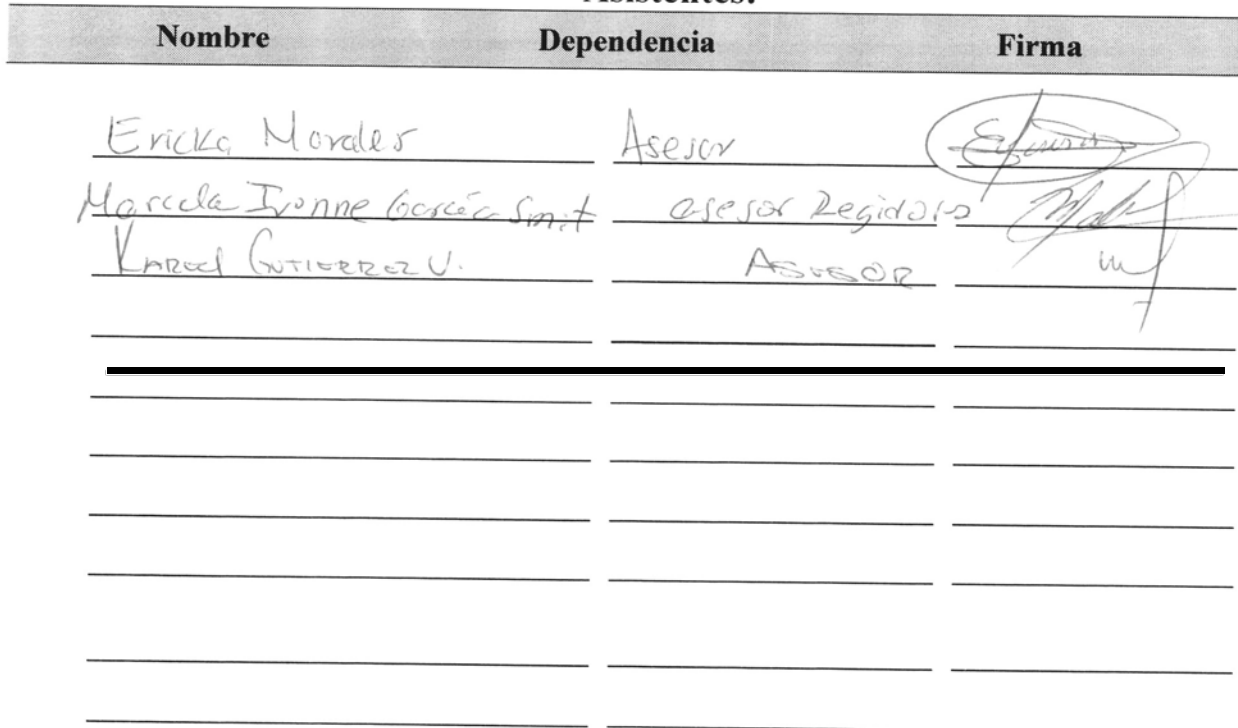 Asistentes:
Nombre Dependencia Firma
Ericka Morales Asesor
Marcela Ivonne García Smit asesor Regidors
Karel Gutierrez V. Asesor